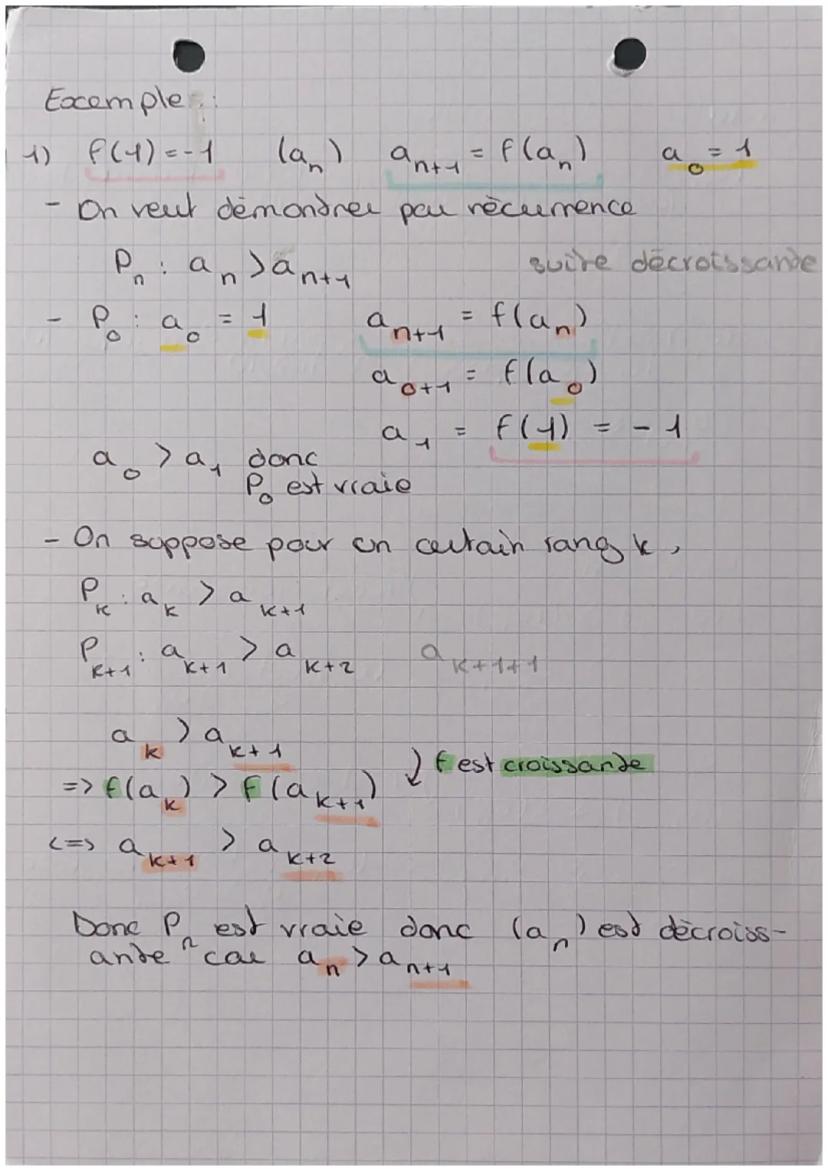 Exemple :
1) f(1) = -1 (aₙ) aₙ₊₁ = f(aₙ) a₀ = 1
- On veut démondrer par récurrence
Pₙ : aₙ > aₙ₊₁ suite décroissante
- P₀ : a₀ = 1 aₙ₊₁ = f(aₙ)
a₀₊₁ = f(a₀)
a₁ = f(1) = -1
a₀ > a₁ donc
P₀ est vraie
- On suppose pour un certain rang k,
Pₖ : aₖ > aₖ₊₁
Pₖ₊₁ : aₖ₊₁ > aₖ₊₂ aₖ₊₁₊₁
aₖ > aₖ₊₁
f est croissante
=> f(aₖ) > f(aₖ₊₁)
<=> aₖ₊₁ > aₖ₊₂
Donc Pₙ est vraie donc (aₙ) est décroiss-
ante car aₙ > aₙ₊₁